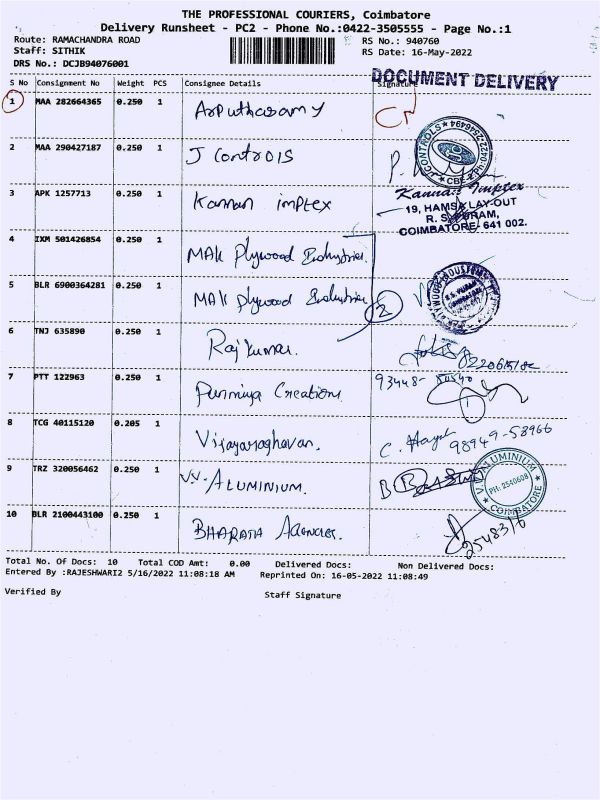 THE PROFESSIONAL COURIERS, Coimbatore
Delivery Runsheet - PC2 - Phone No.:0422-3505555 - Page No.:1
Route: RAMACHANDRA ROAD RS No.: 940760
Staff: SITHIK RS Date: 16-May-2022
DRS No.: DCJB94076001
DOCUMENT DELIVERY
S No Consignment No Weight PCS Consignee Details Signature
1 MAA 282664365 0.250 1 Arputhasamy
2 MAA 290427187 0.250 1 J Controls
J CONTROLS CBE Ph:0422-2546494
3 APK 1257713 0.250 1 Kannan imptex
Kannan Imptex
19, HAMSA LAY-OUT
R. S. PURAM,
COIMBATORE- 641 002.
4 IXM 501426854 0.250 1 MAK Plywood Industries.
5 BLR 6900364281 0.250 1 MAK Plywood Industries 2
6 TNJ 635890 0.250 1 Rajkumar.
7 PTT 122963 0.250 1 Punniya Creations 93448-
8 TCG 40115120 0.205 1 Vijayaraghavan. 98949-58966
9 TRZ 320056462 0.250 1 V.V. ALUMINIUM.
V.V. ALUMINIUM PH: 2540608 COIMBATORE
10 BLR 2100443100 0.250 1 BHARATH Agencies. 2548316
Total No. Of Docs: 10 Total COD Amt: 0.00 Delivered Docs: Non Delivered Docs:
Entered By :RAJESHWARI2 5/16/2022 11:08:18 AM Reprinted On: 16-05-2022 11:08:49
Verified By Staff Signature